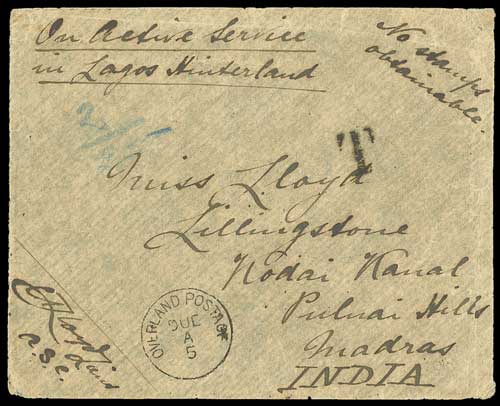 On Active Service
in Lagos Hinterland
No stamps
obtainable.
T
Miss Lloyd
Lillingstone
Kodai Kanal
Pulnai Hills
Madras
INDIA
OVERLAND POSTAGE
DUE
A
5
Lloyd
a.S.C.